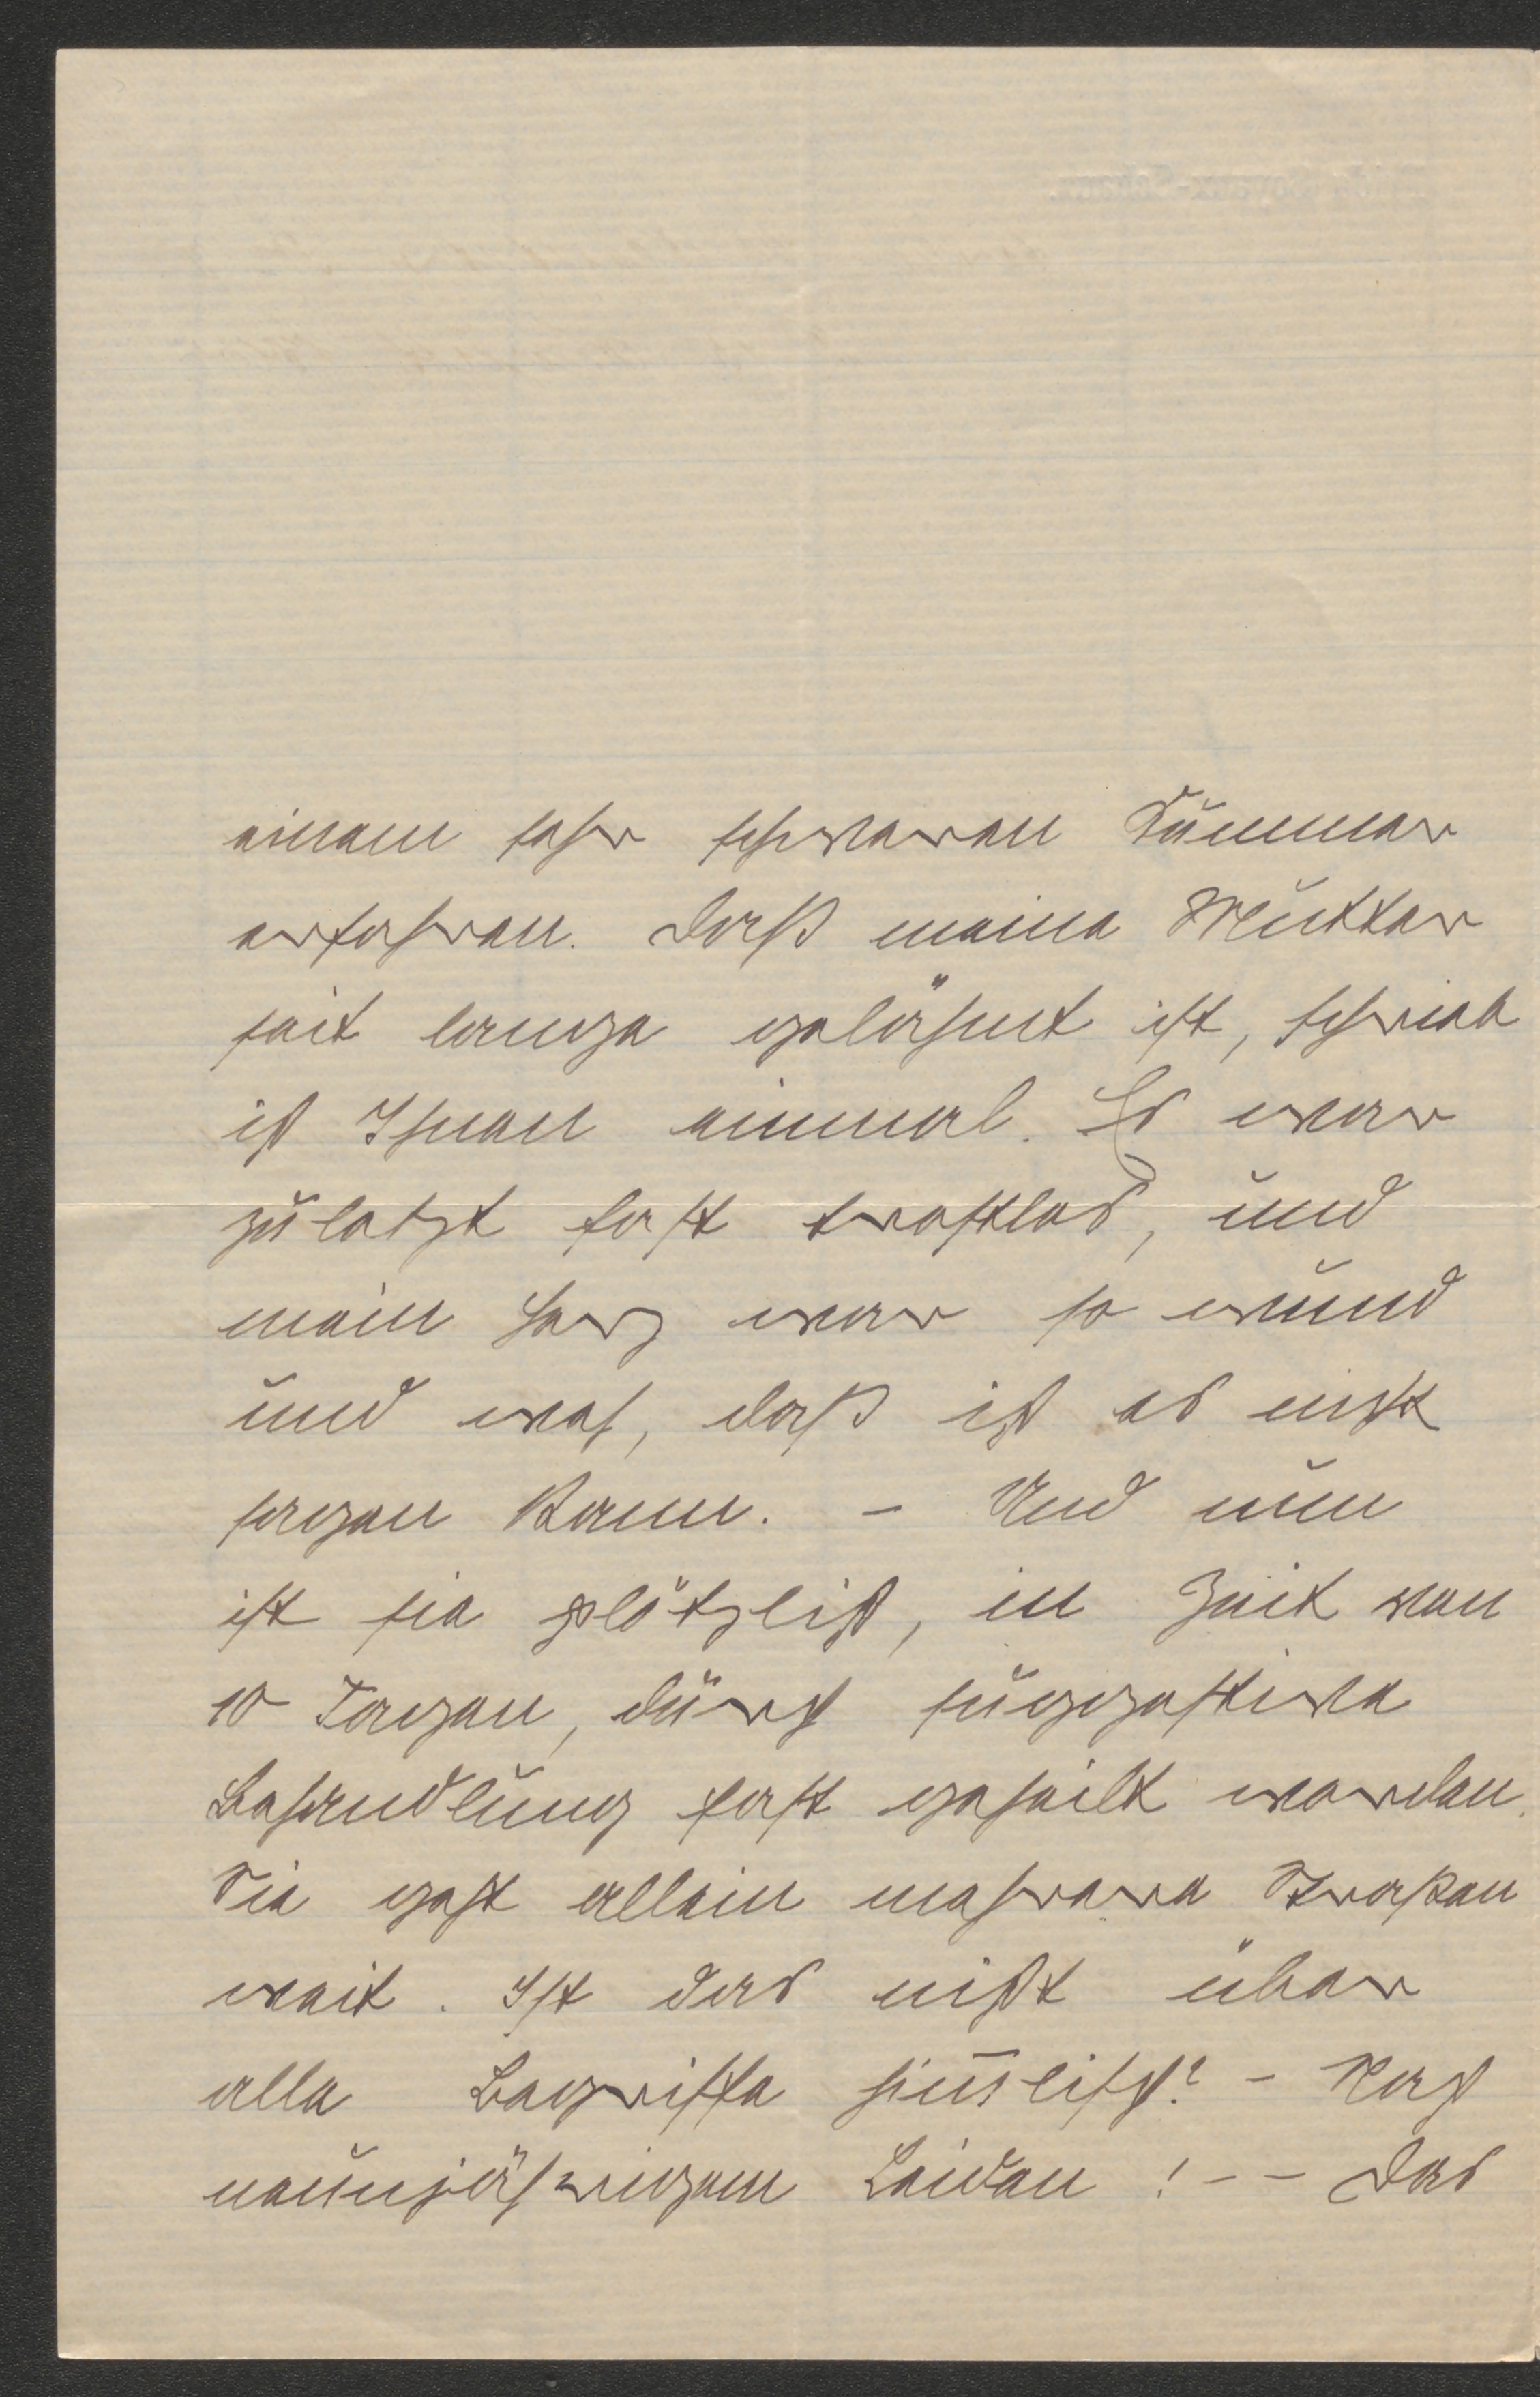 einem sehr schweren Kummer
erfahren. Daß meine Mutter
seit lange gelähmt ist, schrieb
ich Ihnen einmal. Es war
zuletzt fast trostlos, und
mein Herz war so wund
und weh, daß ich es nicht
sagen kann. – Und nun
ist sie plötzlich, in Zeit von
10 Tagen, durch suggestive
Behandlung fast geheilt worden.
Sie geht allein mehrere Straßen
weit. Ist das nicht über
alle Begriffe – Nach
neunjährigem Leiden! – – Das